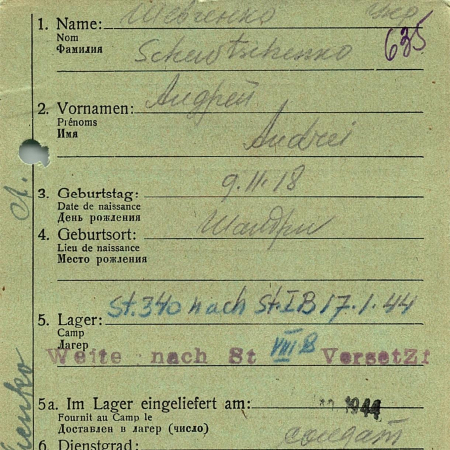 Шевченко Укр
1. Name:
Nom
Фамилия
Schewtschenko
635
Андрей
2. Vornamen:
Prénoms
Имя
Andrei
3. Geburtstag: 9.II.18
Date de naissance
День рождения
4. Geburtsort: Шандры
Lieu de naissance
Место рождения
St.340 nach St.IB 17.1.44
5. Lager:
Camp
Лагер
Weite nach St VIII B VersetZt
5a. Im Lager eingeliefert am: 1944
Fournit au Camp le
Доставлен в лагер (число)
6. Dienstgrad: солдат